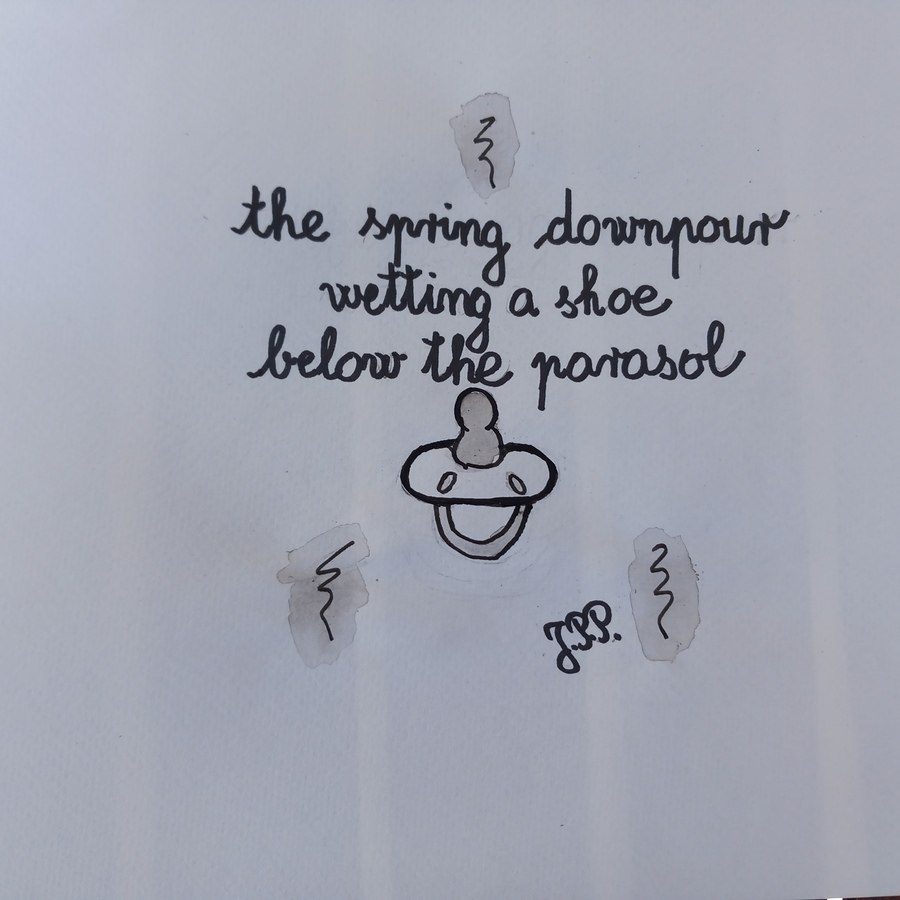 the spring downpour
wetting a shoe
below the parasol
J.P.P.